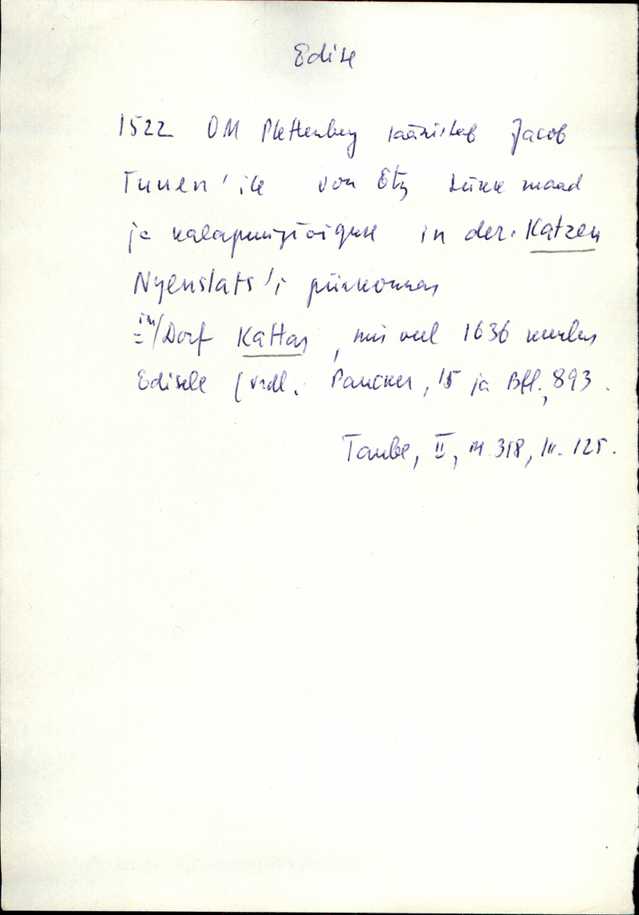 Edise
1522 OM Plettenberg läänistab Jacob
Tuuen'ile von Etz tüki maad
ja kalapüügiõiguse in der. Katzen
Nyenslats'i piirkonnas
= im/Dorf Kattas, mis veel 1636 kuulus
Edisele (vrdl. Paucker, 15 ja Bfl., 893.
Taube, II, nr. 318, lk. 125.